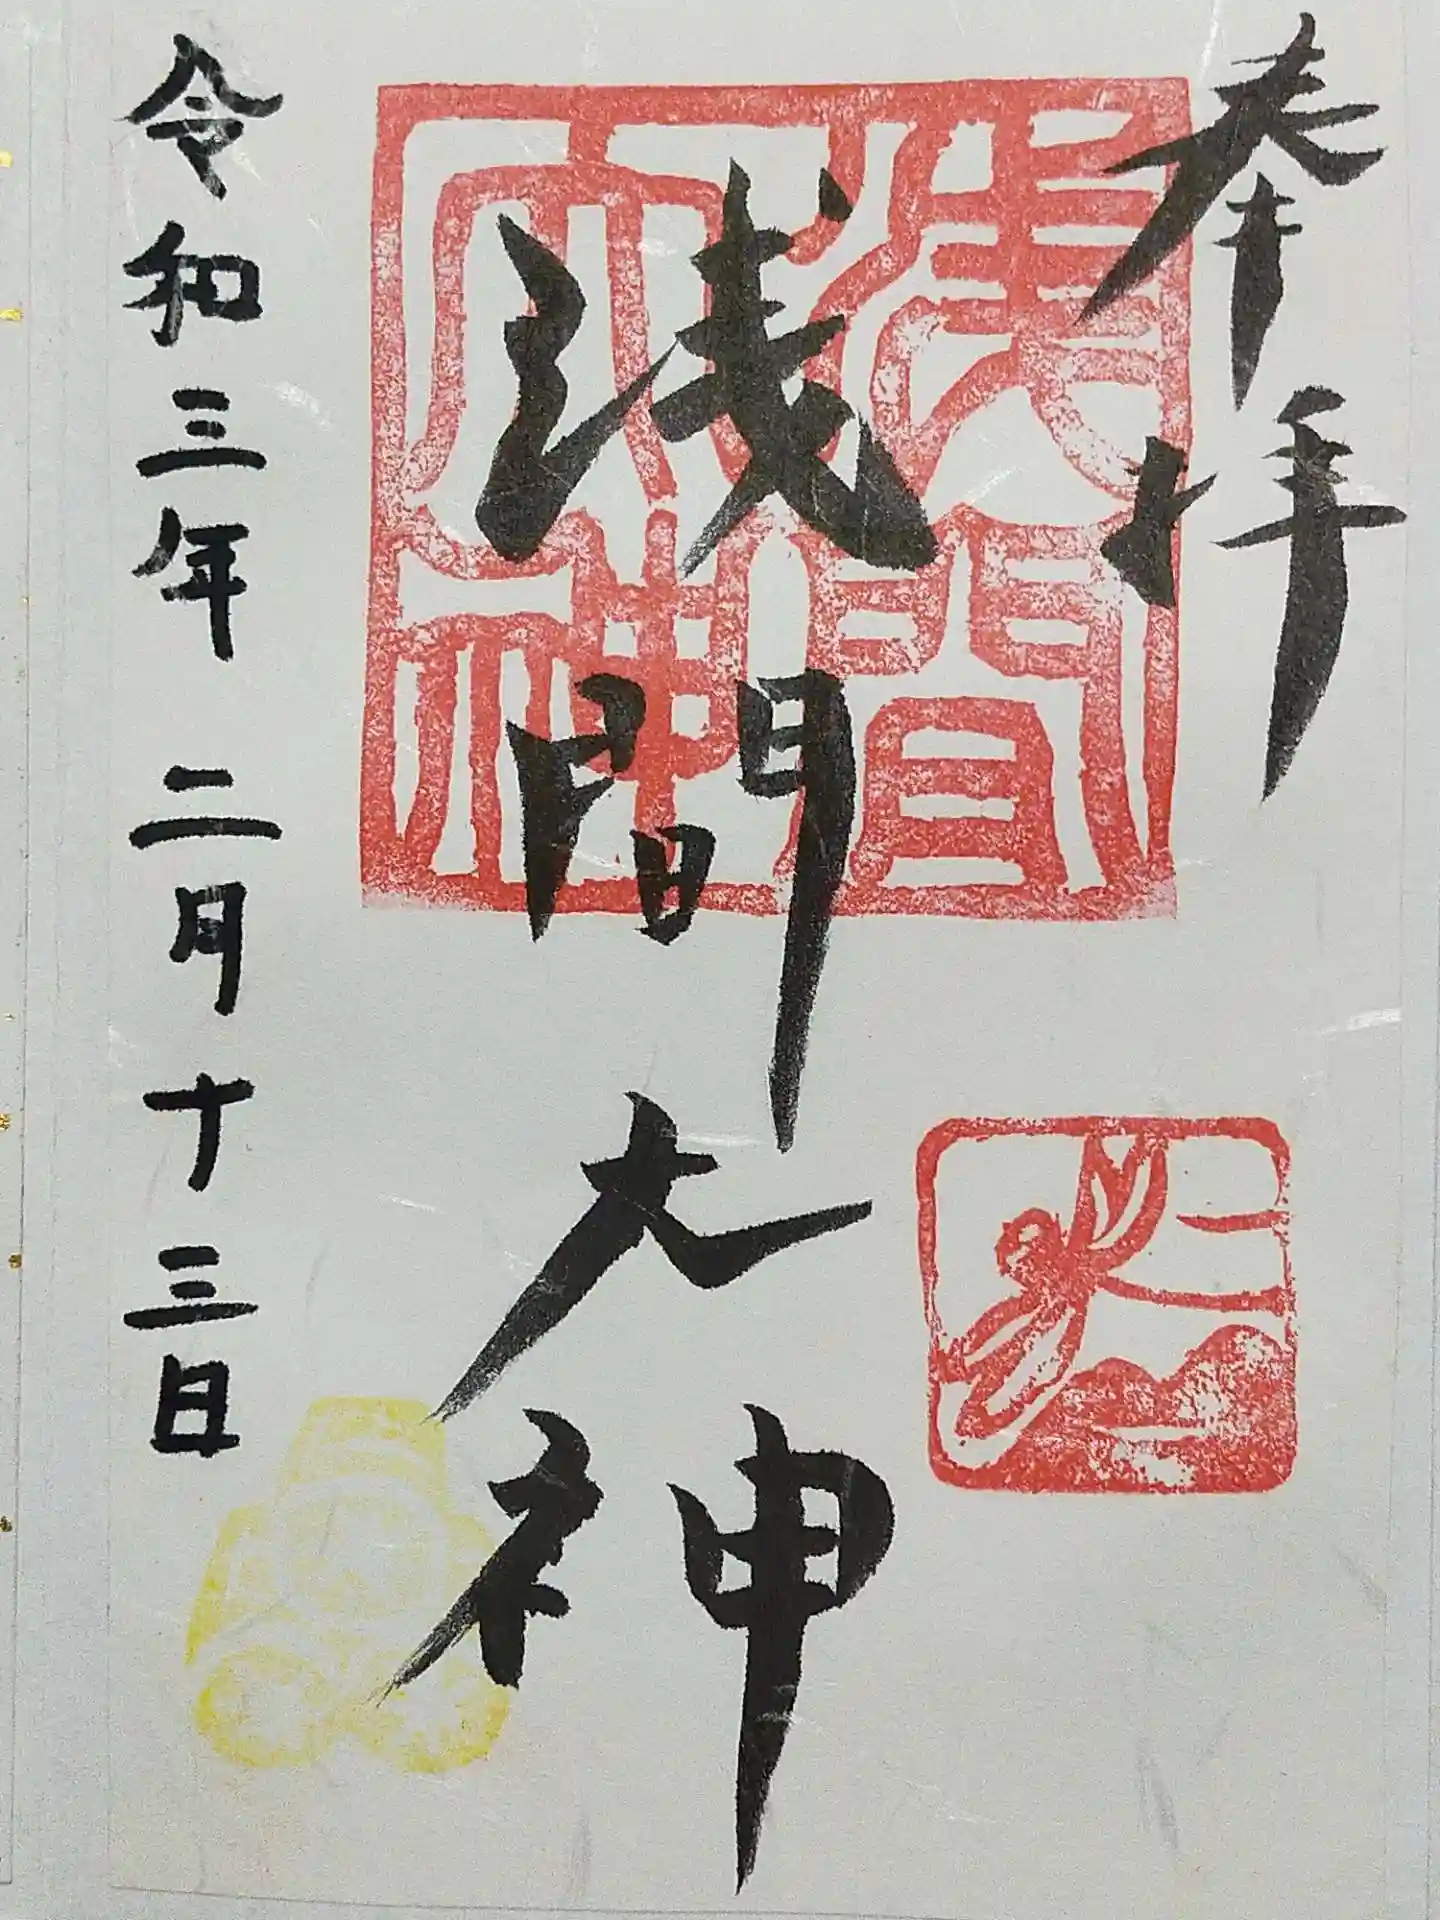 奉拝
浅間大神
浅間大神
令和三年二月十三日